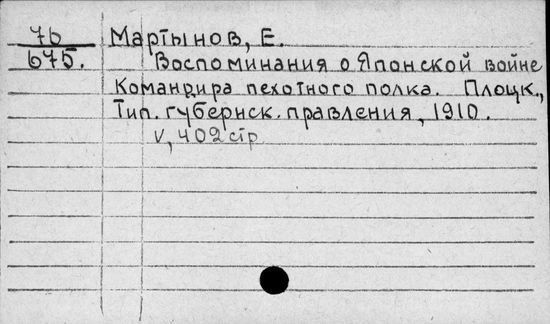 76 Мартынов, Е.
675. Воспоминания о Японской войне
Командира пехотного полка. Плоцк.,
Тип. губернск. правления, 1910.
V, 402 стр